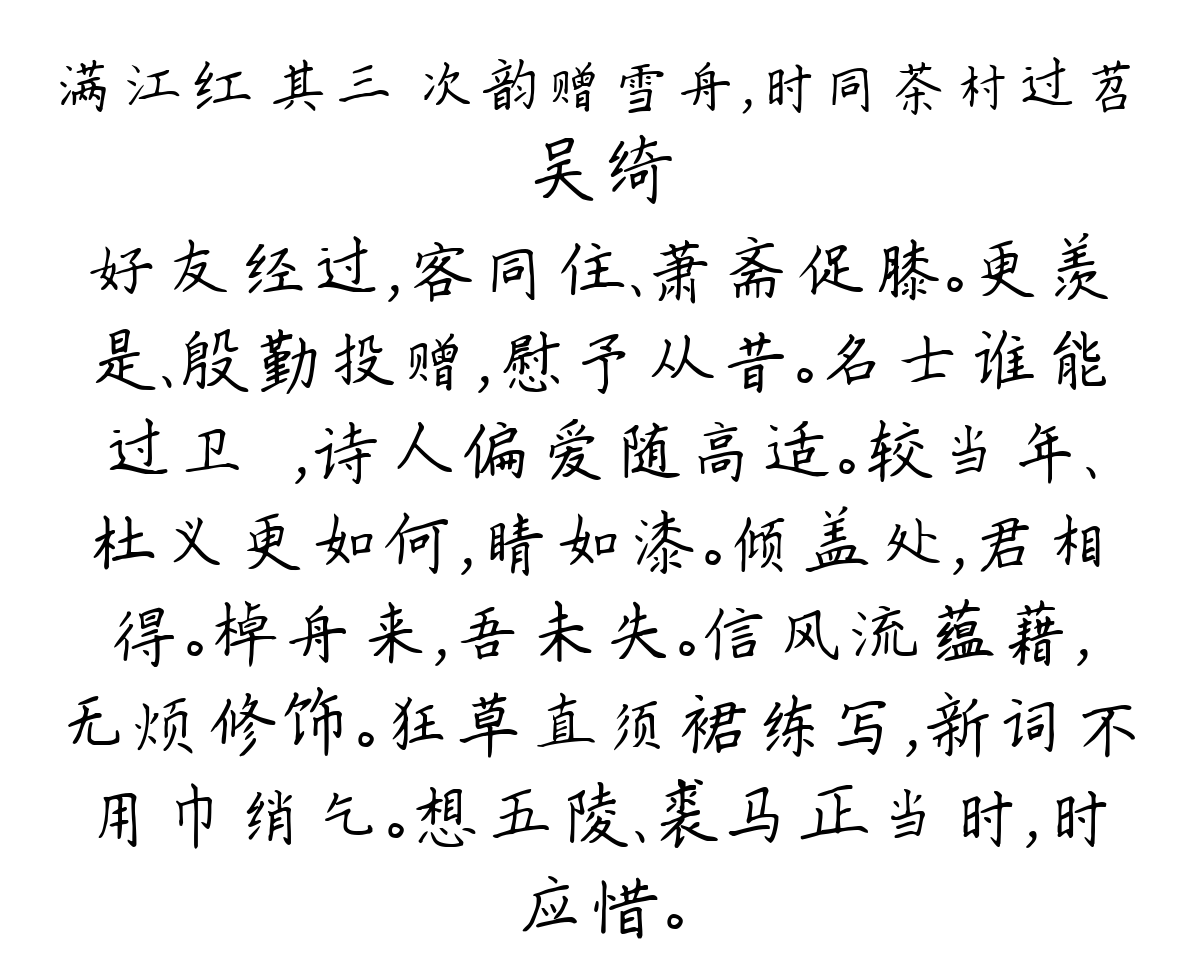 满江红 其三 次韵赠雪舟,时同茶村过苕
吴绮
好友经过,客同住、萧斋促膝。更羡
是、殷勤投赠,慰予从昔。名士谁能
过卫 ,诗人偏爱随高适。较当年、
杜义更如何,睛如漆。倾盖处,君相
得。棹舟来,吾未失。信风流蕴藉,
无烦修饰。狂草直须裙练写,新词不
用巾绡乞。想五陵、裘马正当时,时
应惜。